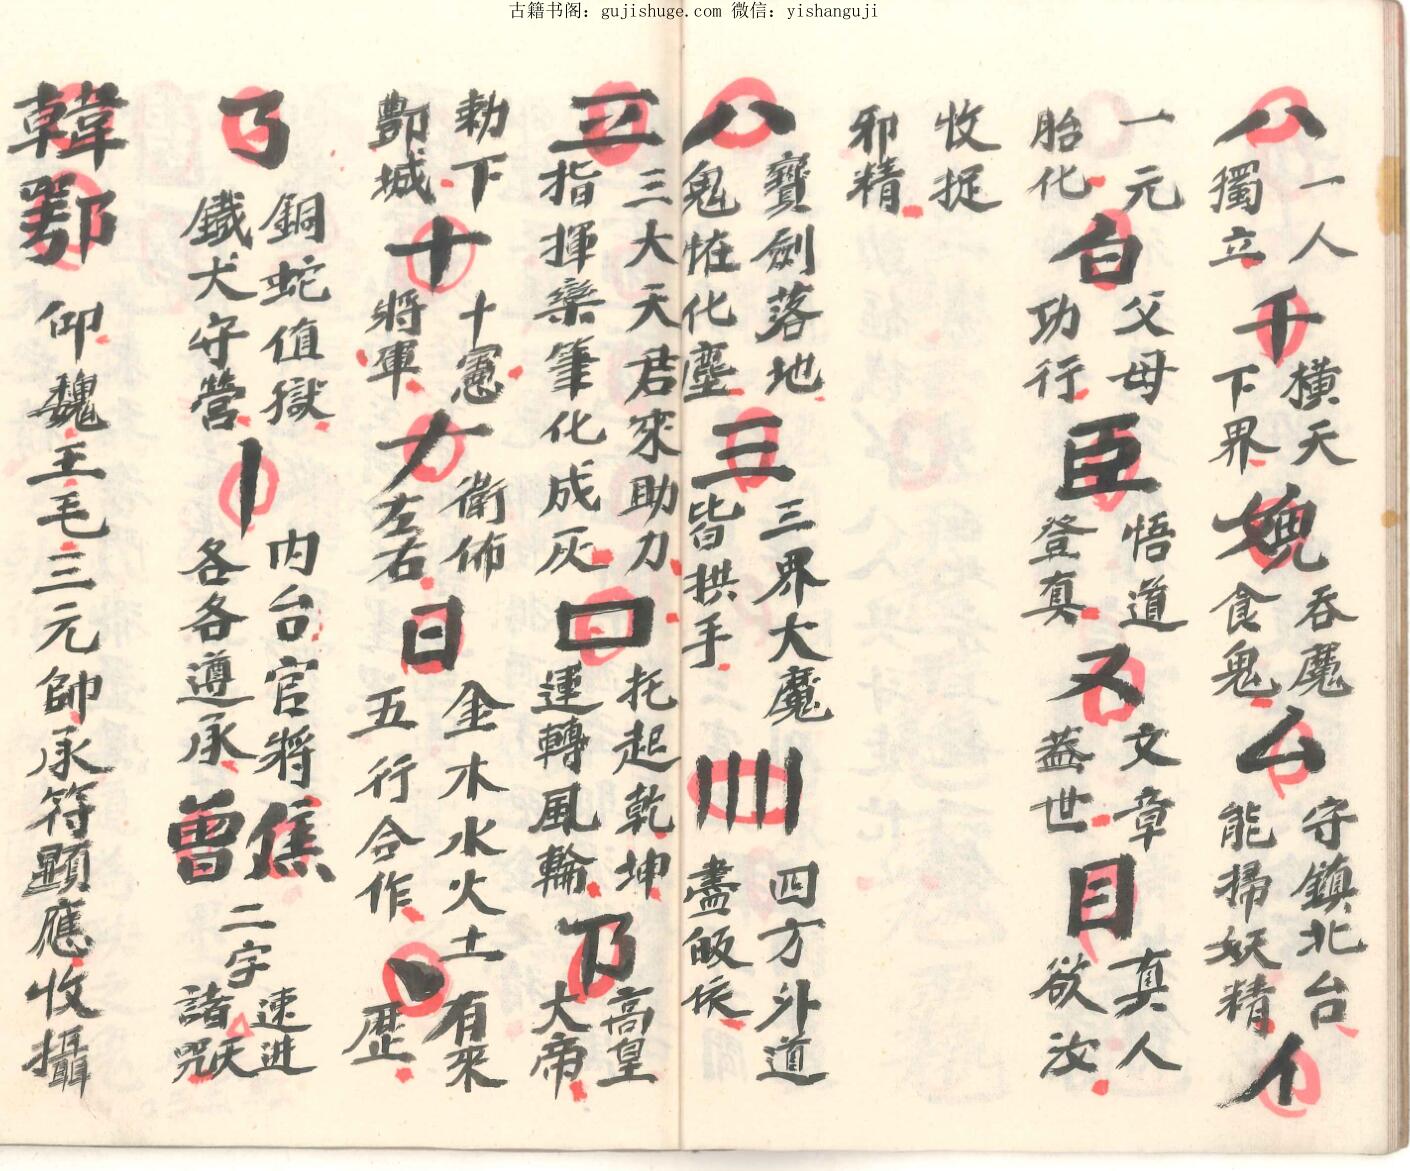 古籍书阁：gujishuge.com 微信：yishanguji
八 一人獨立 千 橫天下界 魂 吞魔食鬼 厶 守鎮北台能掃妖精 亻
一元胎化 白 父母功行 臣 悟道登真 又 文章蓋世 目 真人欲汝
收捉邪精
八 寶劍落地鬼怪化塵 三 三界大魔皆拱手 四方外道盡皈依
三大天君來助力指揮欒筆化成灰 口 托起乾坤運轉風輪 乃 高皇大帝
勅下酆城 十 十憲將軍 衛佈左右 日 金木水火土五行合作 丶 有來歷
銅蛇值獄鐵犬守營 丨 内台官將各各遵承 焦曾 二字 速進諸天咒
韓鄂 仰魏王毛三元帥承符顕應收攝